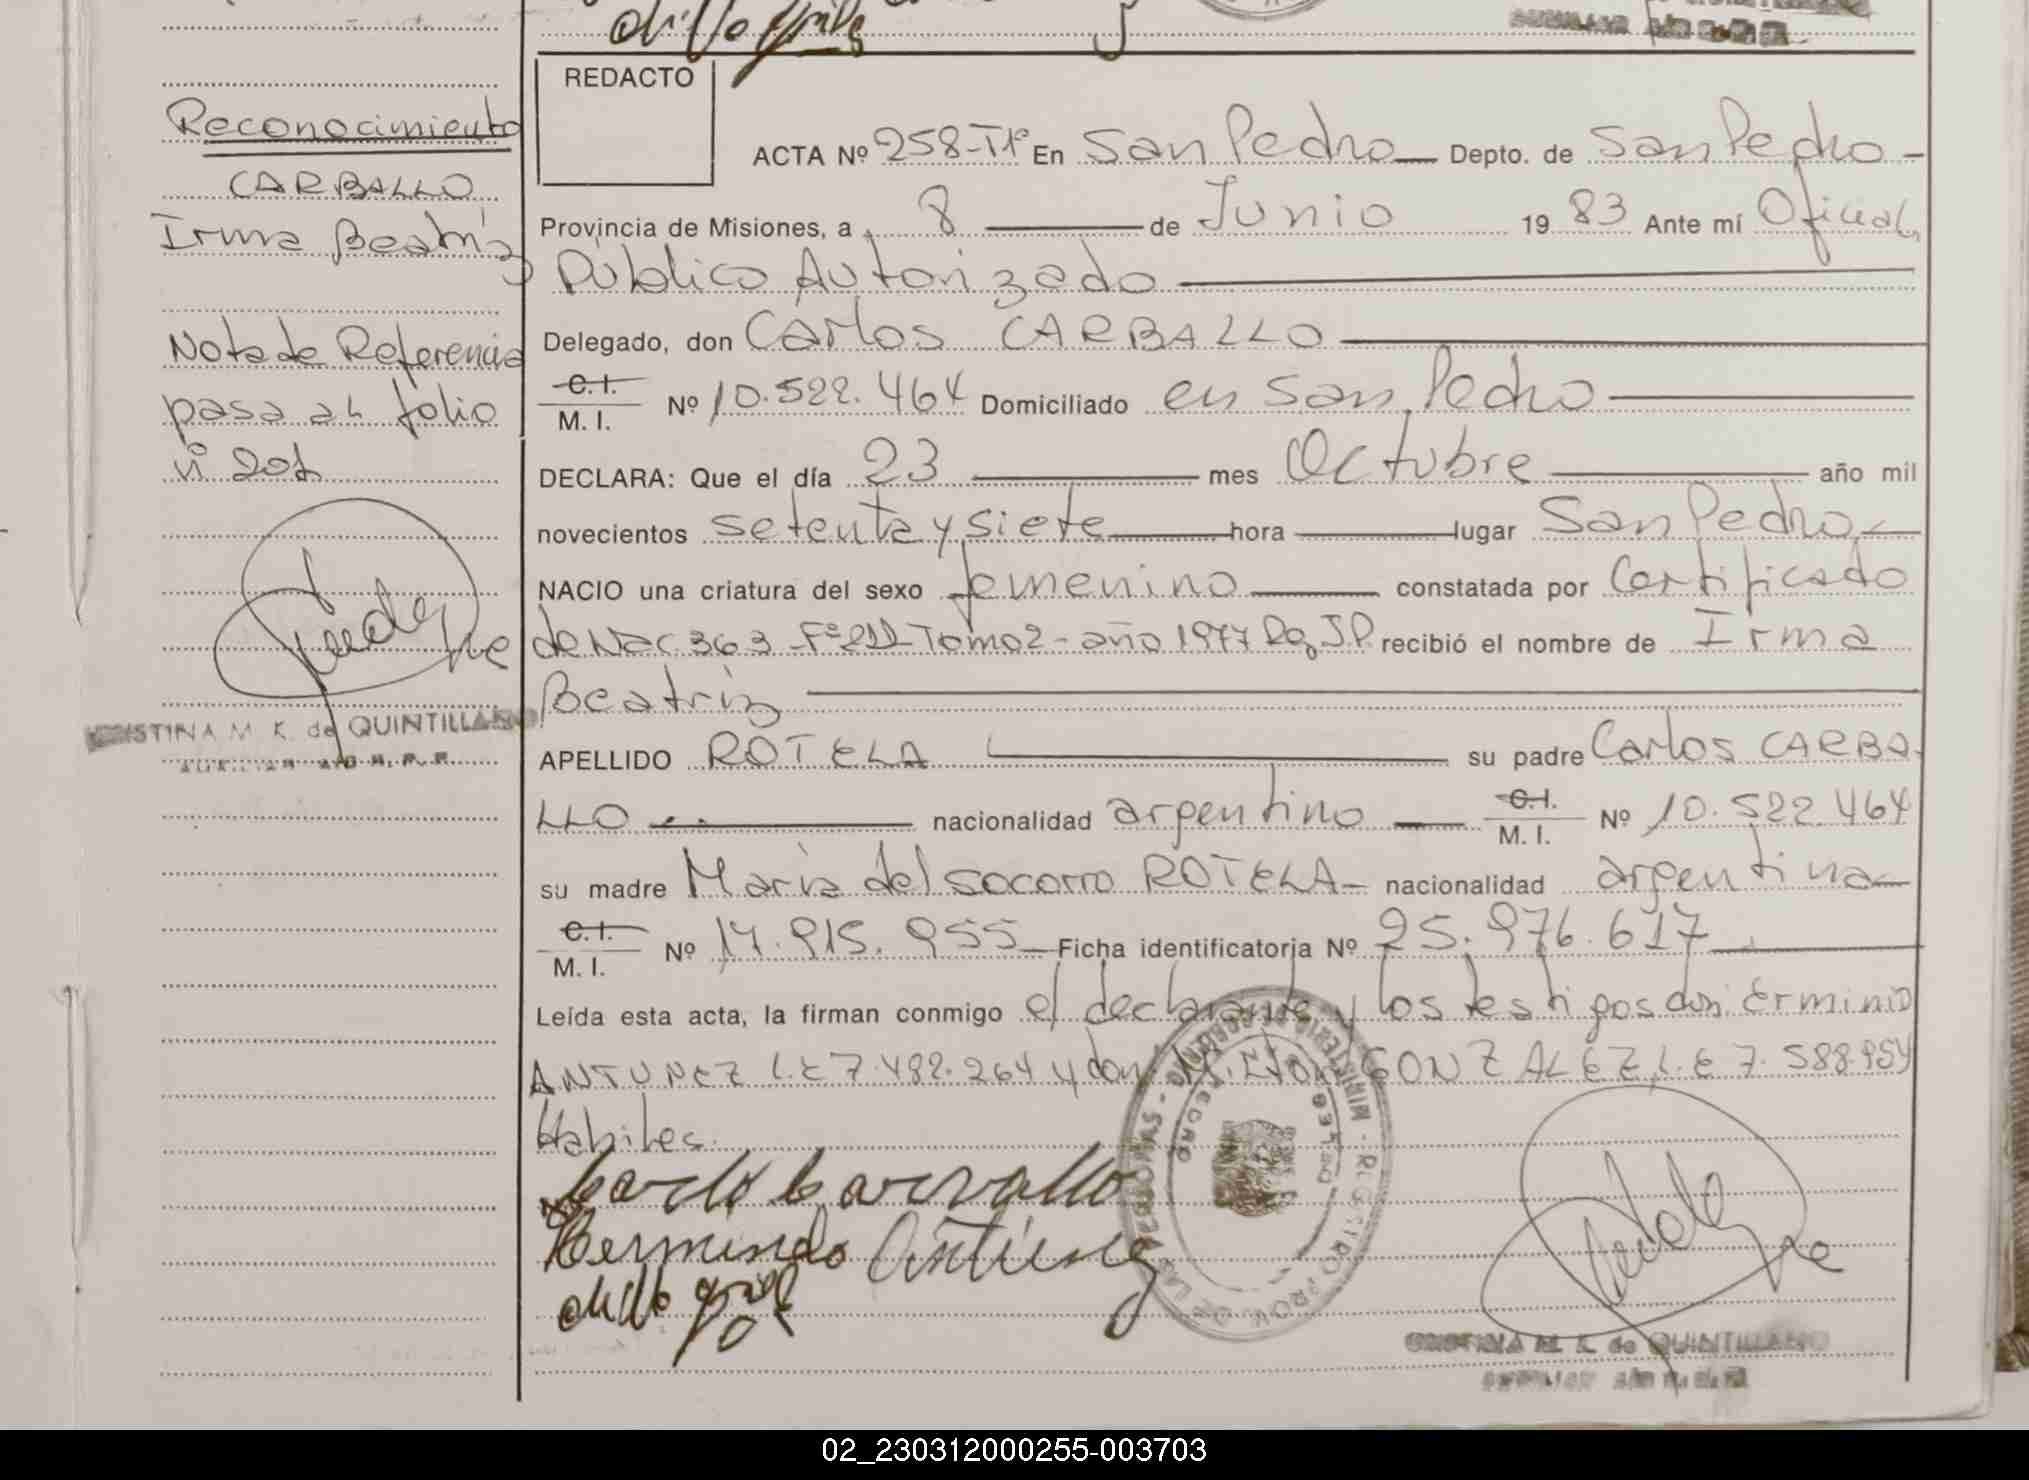 Reconocimiento
CARBALLO
Irma Beatriz
Nota de Referencia
pasa al folio
nº 201
CRISTINA M. K. de QUINTILLANO
AUXILIAR
REDACTO
ACTA Nº 258-Tº1º En San Pedro Depto. de San Pedro
Provincia de Misiones, a 8 de Junio 1983 Ante mí Oficial
Público Autorizado
Delegado, don Carlos CARBALLO
C.I. / M. I. Nº 10.522.464 Domiciliado en San Pedro
DECLARA: Que el día 23 mes Octubre año mil
novecientos setenta y siete hora lugar San Pedro
NACIO una criatura del sexo femenino constatada por Certificado
de Nac 363 - Fº 211 - Tomo 2 - año 1977 Rg. J.P. recibió el nombre de Irma
Beatriz
APELLIDO ROTELA su padre Carlos CARBA-
LLO nacionalidad argentino C.I. / M. I. Nº 10.522.464
su madre María del socorro ROTELA - nacionalidad argentina
C.I. / M. I. Nº 14.915.955 Ficha identificatoria Nº 25.976.617
Leída esta acta, la firman conmigo el declarante y los testigos don Erminio
ANTUNEZ L.E 7.482.264 y don Milton GONZALEZ L.E 7.588.954
Habiles.
Carlos Carvallo
Hermindo Antunez
CRISTINA M. K. de QUINTILLANO
02_230312000255-003703